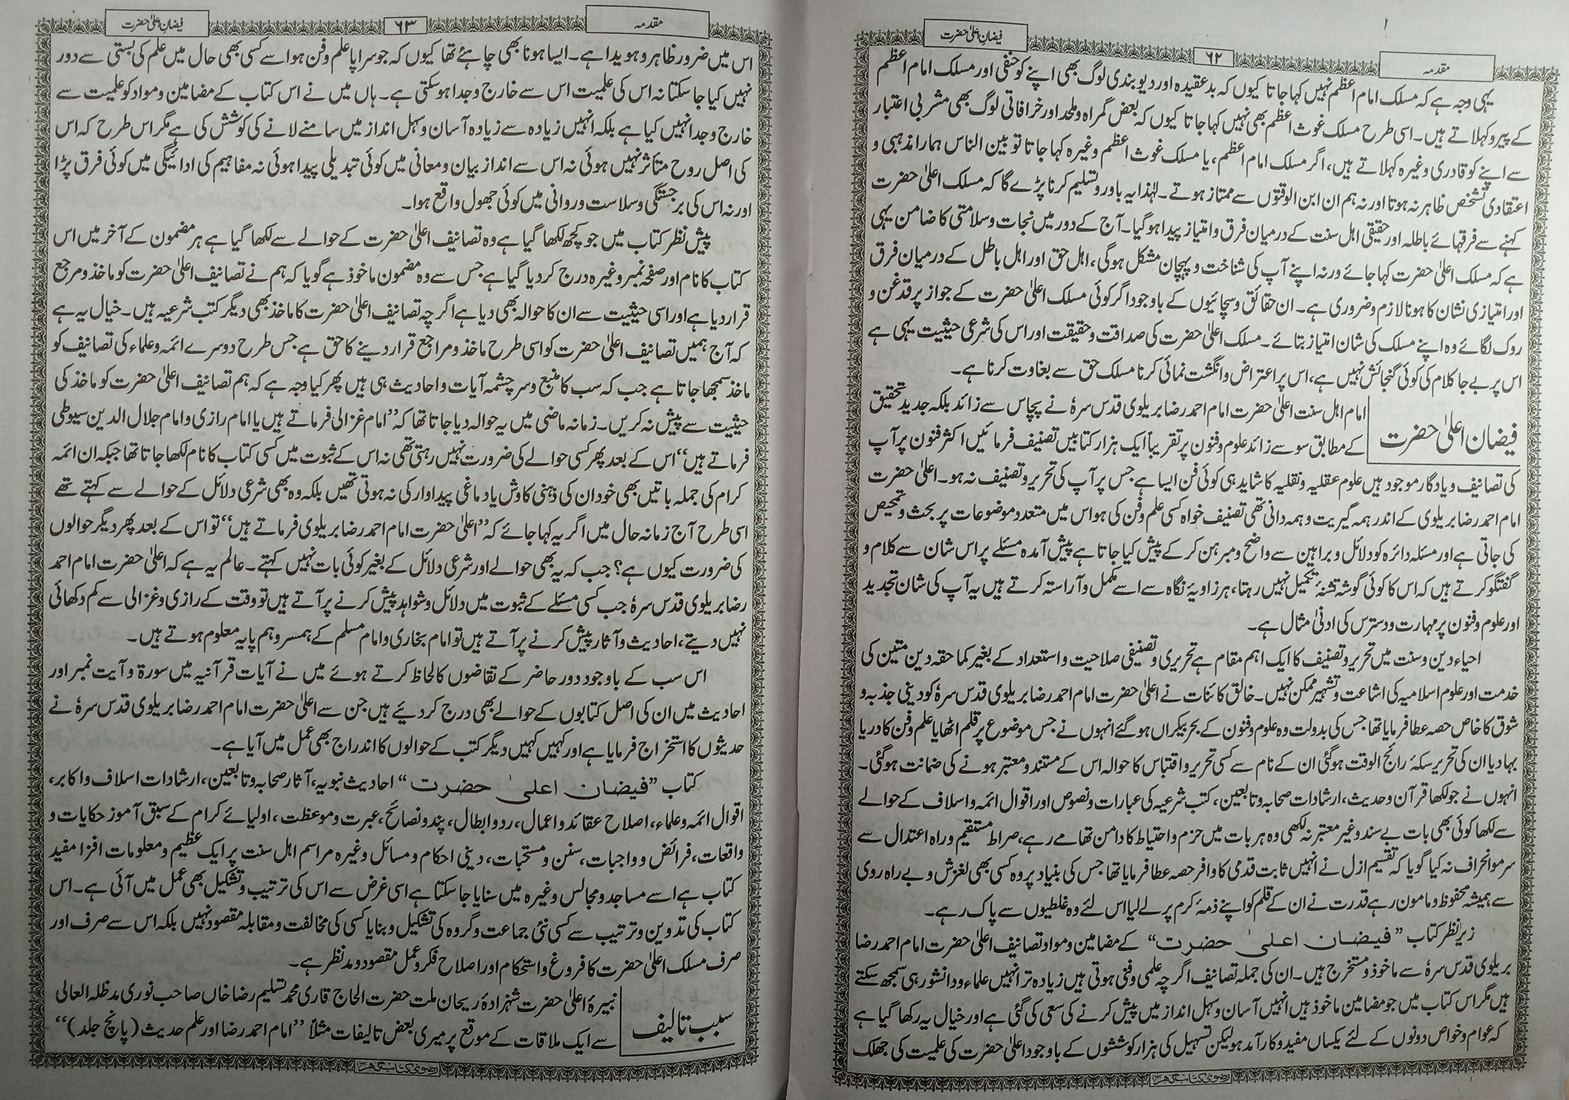 فیضانِ اعلیٰ حضرت
۶۲
مقدمہ
یہی وجہ ہے کہ مسلک امام اعظم نہیں کہا جاتا کیوں کہ بدعقیدہ اور دیوبندی لوگ بھی اپنے کو حنفی اور مسلک امام اعظم
کے پیرو کہلاتے ہیں۔ اسی طرح مسلک غوث اعظم بھی نہیں کہا جاتا کیوں کہ بعض گمراہ و ملحد اور خرافاتی لوگ بھی مشربی اعتبار
سے اپنے کو قادری وغیرہ کہلاتے ہیں، اگر مسلک امام اعظم، یا مسلک غوث اعظم وغیرہ کہا جاتا تو بین الناس ہمارا مذہبی و
اعتقادی تشخص ظاہر نہ ہوتا اور نہ ہم ان ابن الوقتوں سے ممتاز ہوتے۔ لہٰذا یہ باور و تسلیم کرنا پڑے گا کہ مسلک اعلیٰ حضرت
کہنے سے فرقہائے باطلہ اور حقیقی اہل سنت کے درمیان فرق و امتیاز پیدا ہوگیا۔ آج کے دور میں نجات و سلامتی کا ضامن یہی
ہے کہ مسلک اعلیٰ حضرت کہا جائے ورنہ اپنے آپ کی شناخت و پہچان مشکل ہوگی، اہل حق اور اہل باطل کے درمیان فرق
اور امتیازی نشان کا ہونا لازم و ضروری ہے۔ ان حقائق و سچائیوں کے باوجود اگر کوئی مسلک اعلیٰ حضرت کے جواز پر قدغن و
روک لگائے وہ اپنے مسلک کی شان امتیاز بتائے۔ مسلک اعلیٰ حضرت کی صداقت و حقیقت اور اس کی شرعی حیثیت یہی ہے
اس پر بے جا کلام کی کوئی گنجائش نہیں ہے، اس پر اعتراض و انگشت نمائی کرنا مسلک حق سے بغاوت کرنا ہے۔
فیضان اعلیٰ حضرت
امام اہل سنت اعلیٰ حضرت امام احمد رضا بریلوی قدس سرہٗ نے پچاس سے زائد بلکہ جدید تحقیق
کے مطابق سو سے زائد علوم و فنون پر تقریباً ایک ہزار کتابیں تصنیف فرمائیں اکثر فنون پر آپ
کی تصانیف و یادگار موجود ہیں علوم عقلیہ و نقلیہ کا شاید ہی کوئی فن ایسا ہے جس پر آپ کی تحریر و تصنیف نہ ہو۔ اعلیٰ حضرت
امام احمد رضا بریلوی کے اندر ہمہ گیریت و ہمہ دانی تھی تصنیف خواہ کسی علم و فن کی ہو اس میں متعدد موضوعات پر بحث و تمحیص
کی جاتی ہے اور مسئلہ دائرہ کو دلائل و براہین سے واضح و مبرہن کرکے پیش کیا جاتا ہے پیش آمدہ مسئلے پر اس شان سے کلام و
گفتگو کرتے ہیں کہ اس کا کوئی گوشہ تشنۂ تکمیل نہیں رہتا، ہر زاویۂ نگاہ سے اسے مکمل و آراستہ کرتے ہیں یہ آپ کی شان تجدید
اور علوم و فنون پر مہارت و دسترس کی ادنیٰ مثال ہے۔
احیاء دین و سنت میں تحریر و تصنیف کا ایک اہم مقام ہے تحریری و تصنیفی صلاحیت و استعداد کے بغیر کما حقہ دین متین کی
خدمت اور علوم اسلامیہ کی اشاعت و تشہیر ممکن نہیں۔ خالق کائنات نے اعلیٰ حضرت امام احمد رضا بریلوی قدس سرہٗ کو دینی جذبہ و
شوق کا خاص حصہ عطا فرمایا تھا جس کی بدولت وہ علوم و فنون کے بحر بیکراں ہوگئے انہوں نے جس موضوع پر قلم اٹھایا علم و فن کا دریا
بہا دیا ان کی تحریر سکۂ رائج الوقت ہوگئی ان کے نام سے کسی تحریر و اقتباس کا حوالہ اس کے مستند و معتبر ہونے کی ضمانت ہوگئی۔
انہوں نے جو لکھا قرآن و حدیث، ارشادات صحابہ و تابعین، کتب شرعیہ کی عبارات و نصوص اور اقوال ائمہ و اسلاف کے حوالے
سے لکھا کوئی بھی بات بے سند و غیر معتبر نہ لکھی وہ ہر بات میں حزم و احتیاط کا دامن تھامے رہے، صراط مستقیم و راہ اعتدال سے
سرمو انحراف نہ کیا گویا کہ قسیم ازل نے انہیں ثابت قدمی کا وافر حصہ عطا فرمایا تھا جس کی بنیاد پر وہ کسی بھی لغزش و بے راہ روی
سے ہمیشہ محفوظ و مامون رہے قدرت نے ان کے قلم کو اپنے ذمۂ کرم پر لے لیا اس لئے وہ غلطیوں سے پاک رہے۔
زیر نظر کتاب ”فیضان اعلیٰ حضرت“ کے مضامین و مواد تصانیف اعلیٰ حضرت امام احمد رضا
بریلوی قدس سرہٗ سے ماخوذ و مستخرج ہیں۔ ان کی جملہ تصانیف اگرچہ علمی و فنی ہوتی ہیں زیادہ تر انہیں علماء و دانشور ہی سمجھ سکتے
ہیں مگر اس کتاب میں جو مضامین ماخوذ ہیں انہیں آسان و سہل انداز میں پیش کرنے کی سعی کی گئی ہے اور خیال یہ رکھا گیا ہے
کہ عوام و خواص دونوں کے لئے یکساں مفید و کارآمد ہو لیکن تسہیل کی ہزار کوششوں کے باوجود اعلیٰ حضرت کی علمیت کی جھلک
رضوی کتاب گھر
فیضان اعلیٰ حضرت
۶۳
مقدمہ
اس میں ضرور ظاہر و ہویدا ہے۔ ایسا ہونا بھی چاہئے تھا کیوں کہ جو سراپا علم و فن ہو اسے کسی بھی حال میں علم کی بستی سے دور
نہیں کیا جا سکتا نہ اس کی علمیت اس سے خارج و جدا ہوسکتی ہے۔ ہاں میں نے اس کتاب کے مضامین و مواد کو علمیت سے
خارج و جدا نہیں کیا ہے بلکہ انہیں زیادہ سے زیادہ آسان و سہل انداز میں سامنے لانے کی کوشش کی ہے مگر اس طرح کہ اس
کی اصل روح متأثر نہیں ہوئی نہ اس سے انداز بیان و معانی میں کوئی تبدیلی پیدا ہوئی نہ مفاہیم کی ادائیگی میں کوئی فرق پڑا
اور نہ اس کی برجستگی و سلاست و روانی میں کوئی جھول واقع ہوا۔
پیش نظر کتاب میں جو کچھ لکھا گیا ہے وہ تصانیف اعلیٰ حضرت کے حوالے سے لکھا گیا ہے ہر مضمون کے آخر میں اس
کتاب کا نام اور صفحہ نمبر وغیرہ درج کر دیا گیا ہے جس سے وہ مضمون ماخوذ ہے گویا کہ ہم نے تصانیف اعلیٰ حضرت کو ماخذ و مرجع
قرار دیا ہے اور اسی حیثیت سے ان کا حوالہ بھی دیا ہے اگرچہ تصانیف اعلیٰ حضرت کا ماخذ بھی دیگر کتب شرعیہ ہیں۔ خیال یہ ہے
کہ آج ہمیں تصانیف اعلیٰ حضرت کو اسی طرح ماخذ و مراجع قرار دینے کا حق ہے جس طرح دوسرے ائمہ و علماء کی تصانیف کو
ماخذ سمجھا جاتا ہے جب کہ سب کا منبع و سرچشمہ آیات و احادیث ہی ہیں پھر کیا وجہ ہے کہ ہم تصانیف اعلیٰ حضرت کو ماخذ کی
حیثیت سے پیش نہ کریں۔ زمانہ ماضی میں یہ حوالہ دیا جاتا تھا کہ ”امام غزالی فرماتے ہیں یا امام رازی و امام جلال الدین سیوطی
فرماتے ہیں“ اس کے بعد پھر کسی حوالے کی ضرورت نہیں رہتی تھی نہ اس کے ثبوت میں کسی کتاب کا نام لکھا جاتا تھا جبکہ ان ائمہ
کرام کی جملہ باتیں بھی خود ان کی ذہنی کاوش یا دماغی پیداوار کی نہ ہوتی تھیں بلکہ وہ بھی شرعی دلائل کے حوالے سے کہتے تھے
اسی طرح آج زمانہ حال میں اگر یہ کہا جائے کہ ”اعلیٰ حضرت امام احمد رضا بریلوی فرماتے ہیں“ تو اس کے بعد پھر دیگر حوالوں
کی ضرورت کیوں ہے؟ جب کہ یہ بھی حوالے اور شرعی دلائل کے بغیر کوئی بات نہیں کہتے۔ عالم یہ ہے کہ اعلیٰ حضرت امام احمد
رضا بریلوی قدس سرہٗ جب کسی مسئلے کے ثبوت میں دلائل و شواہد پیش کرنے پر آتے ہیں تو وقت کے رازی و غزالی سے کم دکھائی
نہیں دیتے، احادیث و آثار پیش کرنے پر آتے ہیں تو امام بخاری و امام مسلم کے ہمسر و ہم پایہ معلوم ہوتے ہیں۔
اس سب کے باوجود دور حاضر کے تقاضوں کا لحاظ کرتے ہوئے میں نے آیات قرآنیہ میں سورۃ و آیت نمبر اور
احادیث میں ان کی اصل کتابوں کے حوالے بھی درج کر دیئے ہیں جن سے اعلیٰ حضرت امام احمد رضا بریلوی قدس سرہٗ نے
حدیثوں کا استخراج فرمایا ہے اور کہیں کہیں دیگر کتب کے حوالوں کا اندراج بھی عمل میں آیا ہے۔
کتاب ”فیضان اعلیٰ حضرت“ احادیث نبویہ، آثار صحابہ و تابعین، ارشادات اسلاف و اکابر،
اقوال ائمہ و علماء، اصلاح عقائد و اعمال، ردو ابطال، پند و نصائح، عبرت و موعظت، اولیائے کرام کے سبق آموز حکایات و
واقعات، فرائض و واجبات، سنن و مستحبات، دینی احکام و مسائل وغیرہ مراسم اہل سنت پر ایک عظیم و معلومات افزا مفید
کتاب ہے اسے مساجد و مجالس وغیرہ میں سنایا جا سکتا ہے اسی غرض سے اس کی ترتیب و تشکیل بھی عمل میں آئی ہے۔ اس
کتاب کی تدوین و ترتیب سے کسی نئی جماعت و گروہ کی تشکیل و بنا یا کسی کی مخالفت و مقابلہ مقصود نہیں بلکہ اس سے صرف اور
صرف مسلک اعلیٰ حضرت کا فروغ و استحکام اور اصلاح فکر و عمل مقصود و مدنظر ہے۔
سبب تالیف
نبیرۂ اعلیٰ حضرت شہزادۂ ریحان ملت حضرت الحاج قاری محمد تسلیم رضا خاں صاحب نوری مدظلہ العالی
سے ایک ملاقات کے موقع پر میری بعض تالیفات مثلاً ”امام احمد رضا اور علم حدیث (پانچ جلد)“
رضوی کتاب گھر